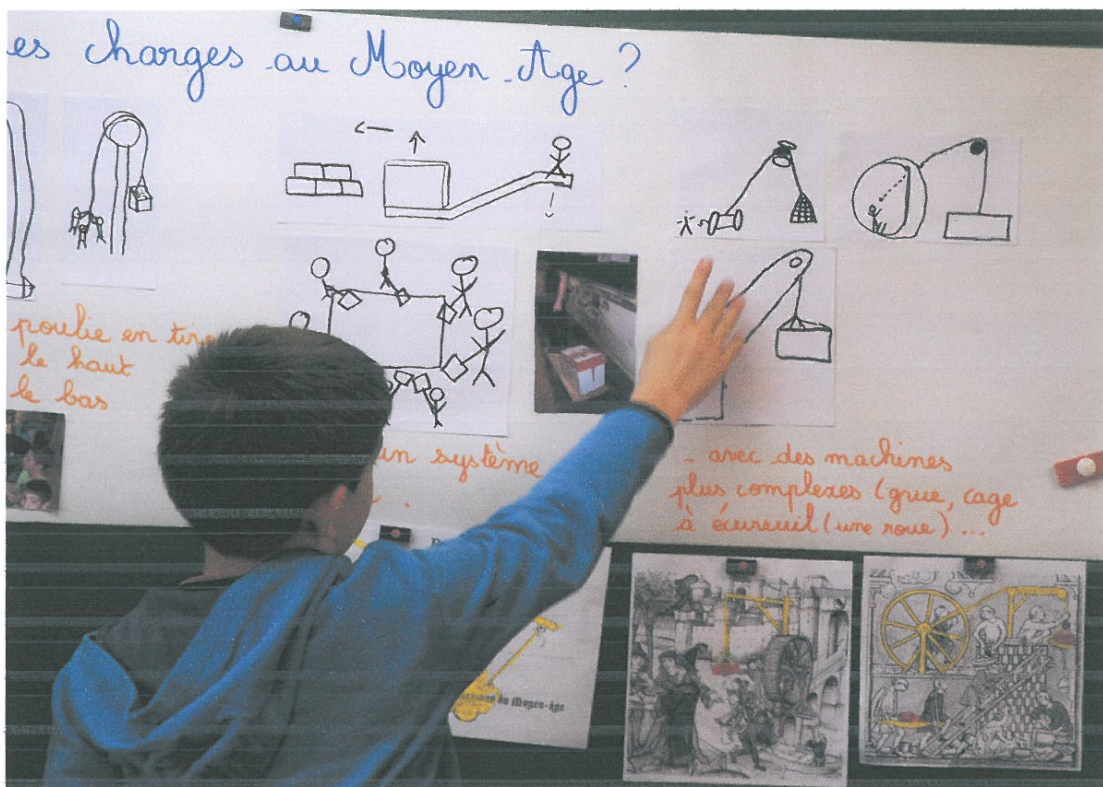 es charges au Moyen-Age ?
poulie en tire
le haut
le bas
un système
- avec des machines
plus complexes (grue, cage
à écureuil (une roue) ...
du Moyen-âge